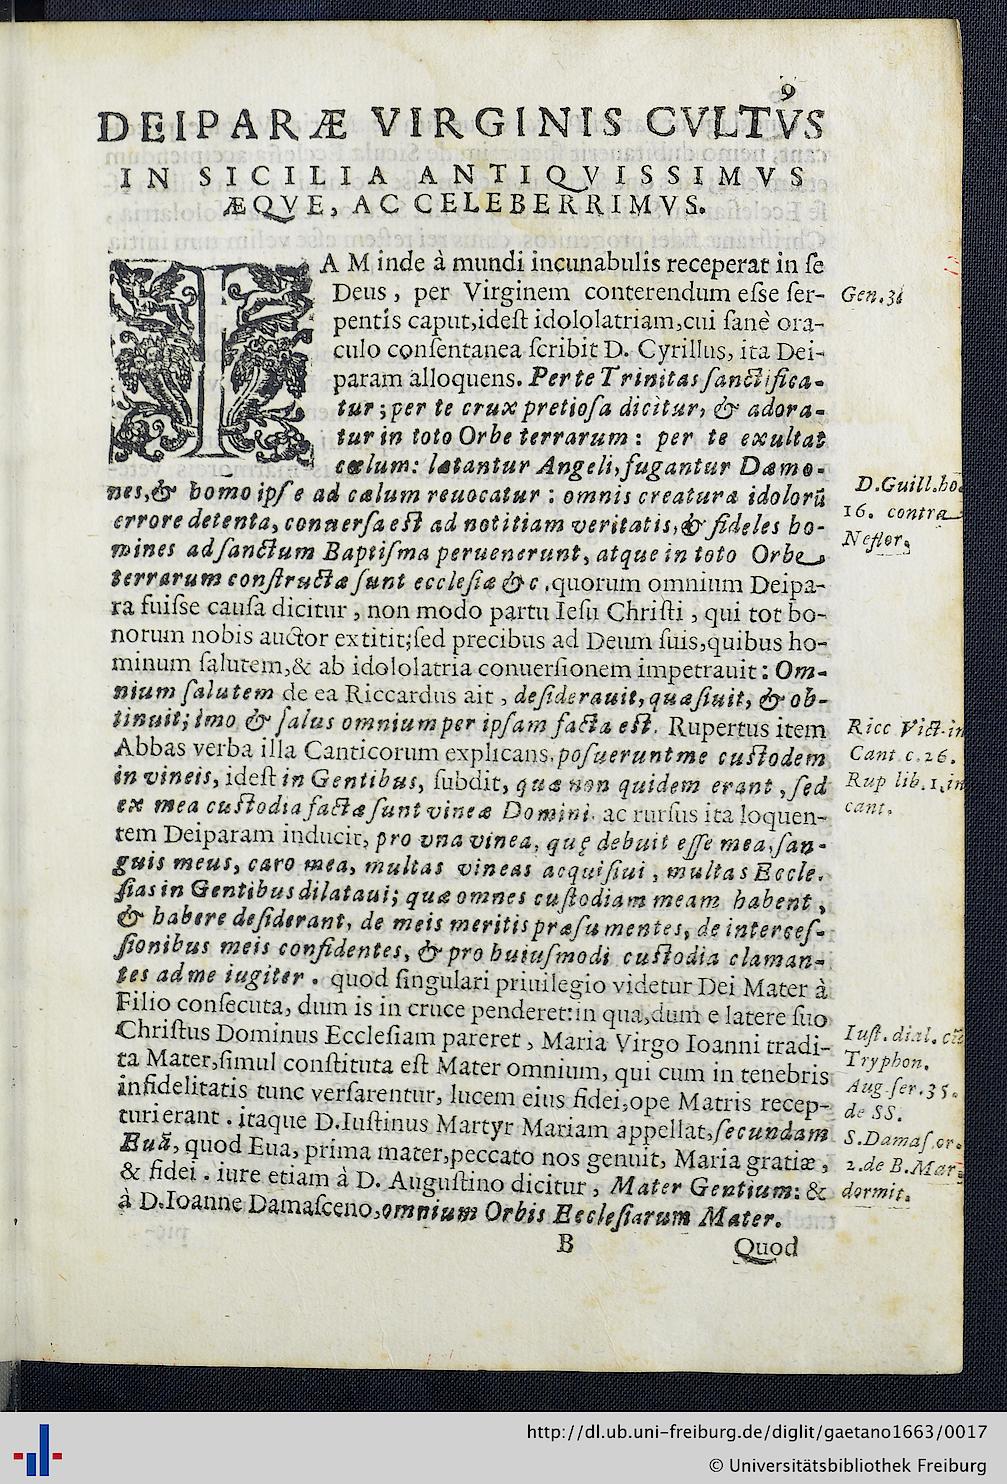 9
DEIPARÆ VIRGINIS CVLTVS
IN SICILIA ANTIQVISSIMVS
ÆQVE, AC CELEBERRIMVS.
IAM inde à mundi incunabulis receperat in ſe
Deus, per Virginem conterendum eſse ſer-
pentis caput,ideſt idololatriam,cui ſanè ora-
culo conſentanea ſcribit D. Cyrillus, ita Dei-
param alloquens. Per te Trinitas ſanctifica-
tur; per te crux pretioſa dicitur, & adora-
tur in toto Orbe terrarum: per te exultat
cœlum: lætantur Angeli, fugantur Dæmo-
nes,& homo ipſe ad cælum reuocatur: omnis creatura idolorũ
errore detenta, conuerſa eſt ad notitiam veritatis,& fideles ho-
mines ad ſanctum Baptiſma peruenerunt, atque in toto Orbe
terrarum conſtructæ ſunt eccleſiæ &c. quorum omnium Deipa-
ra fuiſse cauſa dicitur, non modo partu Ieſu Chriſti, qui tot bo-
norum nobis auctor extitit;ſed precibus ad Deum ſuis,quibus ho-
minum ſalutem,& ab idololatria conuerſionem impetrauit: Om-
nium ſalutem de ea Riccardus ait, deſiderauit, quæſiuit, & ob-
tinuit; imo & ſalus omnium per ipſam facta eſt. Rupertus item
Abbas verba illa Canticorum explicans, poſuerunt me cuſtodem
in vineis, ideſt in Gentibus, ſubdit, quæ non quidem erant, ſed
ex mea cuſtodia factæ ſunt vineæ Domini. ac rurſus ita loquen-
tem Deiparam inducit, pro vna vinea, quę debuit eſſe mea, ſan-
guis meus, caro mea, multas vineas acquiſiui, multas Eccle-
ſias in Gentibus dilataui; quæ omnes cuſtodiam meam habent,
& habere deſiderant, de meis meritis præſumentes, de interceſ-
ſionibus meis confidentes, & pro huiuſmodi cuſtodia claman-
tes ad me iugiter. quod ſingulari priuilegio videtur Dei Mater à
Filio conſecuta, dum is in cruce penderet:in qua,dum e latere ſuo
Chriſtus Dominus Eccleſiam pareret, Maria Virgo Ioanni tradi-
ta Mater,ſimul conſtituta eſt Mater omnium, qui cum in tenebris
infidelitatis tunc verſarentur, lucem eius fidei,ope Matris recep-
turi erant. itaque D.Iuſtinus Martyr Mariam appellat,ſecundam
Euã, quod Eua, prima mater,peccato nos genuit, Maria gratiæ,
& fidei. iure etiam à D. Auguſtino dicitur, Mater Gentium: &
à D.Ioanne Damaſceno,omnium Orbis Eccleſiarum Mater.
B
Quod
Gen.3.
D.Guill.ho.
16. contra
Neſtor.
Ricc Vict.in
Cant c.26.
Rup lib.1.in
cant.
Iuſt. dial. cũ
Tryphon.
Aug.ſer.35.
de SS.
S.Damaſ.or.
2.de B.Mar.
dormit.
http://dl.ub.uni-freiburg.de/diglit/gaetano1663/0017
© Universitätsbibliothek Freiburg